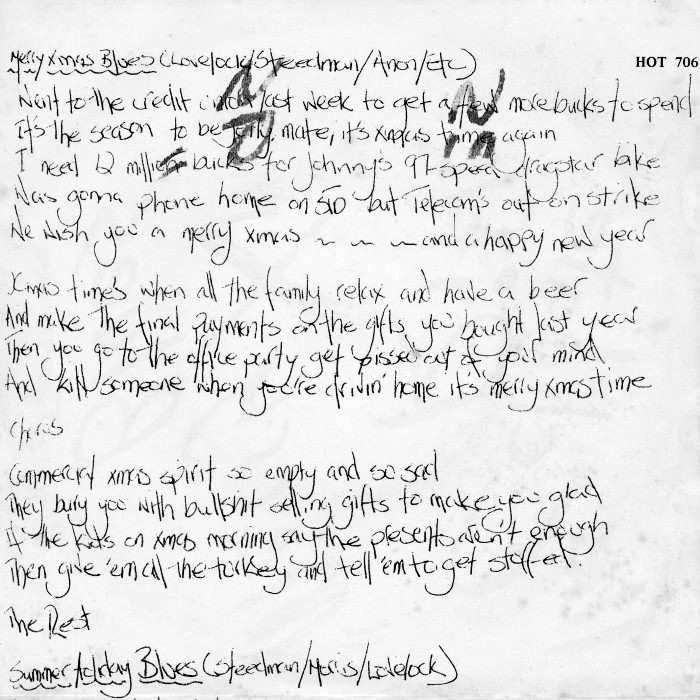 Merry Xmas Blues (Lovelock/Steedman/Anon/Etc)
HOT 706
Went to the credit union last week to get a few more bucks to spend
It's the season to be jolly, mate, it's xmas time again
I need 12 million bucks for Johnny's 97 speed dragstar bike
Was gonna phone home on STD but Telecom's out on strike
We wish you a merry xmas ~ ~ ~ and a happy new year
Xmas time's when all the family relax and have a beer
And make the final payments on the gifts you bought last year
Then you go to the office party get pissed out of your mind
And kill someone when you're drivin' home it's merry xmas time
Chorus
Commercial xmas spirit so empty and so sad
They bury you with bullshit selling gifts to make you glad
If the kids on xmas morning say the presents aren't enough
Then give 'em all the turkey and tell 'em to get stuffed.
The Rest
Summer Holiday Blues (Steedman/Morris/Lovelock)